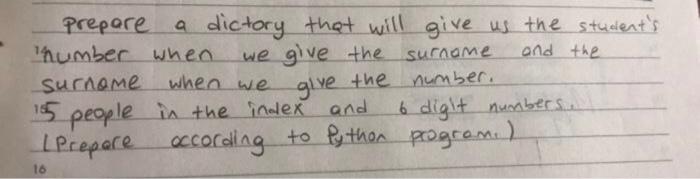 prepare a dictory that will give us the student's
number when we give the surname and the
surname when we give the number.
15 people in the index and 6 digit numbers.
(Prepare according to Python program.)
16